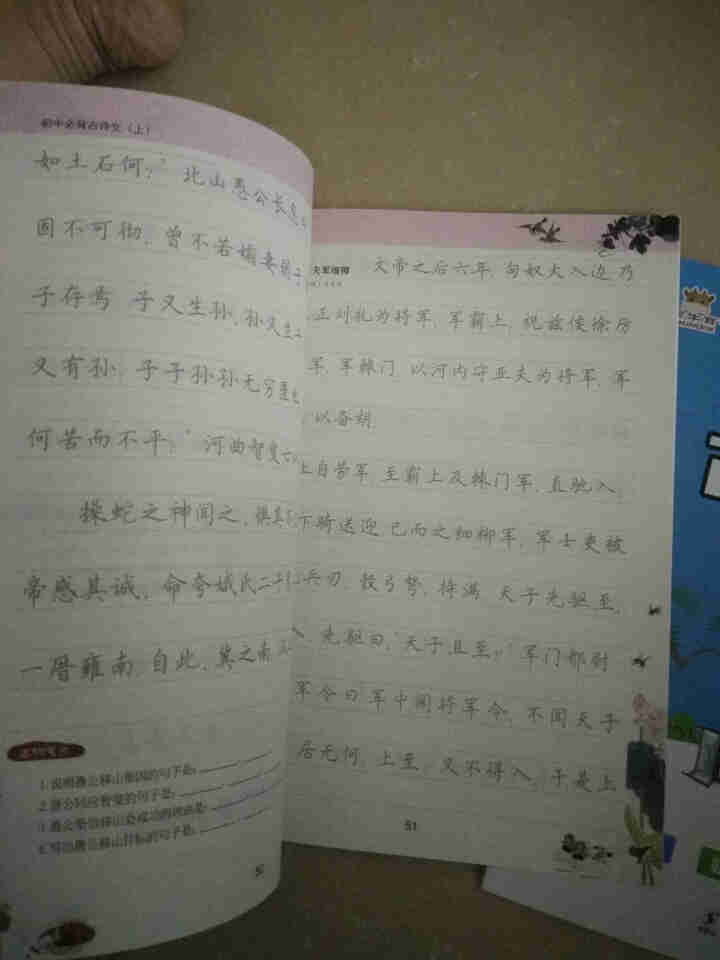 初中必背古诗文（上）
如土石何？”北山愚公长息
固不可彻，曾不若孀妻弱子
子存焉 子又生孙，孙又生
又有孙；子子孙孙无穷匮也
何苦而不平？”河曲智叟亡
操蛇之神闻之，惧其
帝感其诚，命夸娥氏二子
一厝雍南。自此，冀之南
1.说明愚公移山原因的句子是：
2.愚公回应智叟的句子是：
3.愚公坚信移山会成功的理由是：
4.写出愚公移山目标的句子是：
夫军细柳
文帝之后六年，匈奴大入边 乃
正刘礼为将军，军霸上，祝兹侯徐厉
军，军棘门，以河内守亚夫为将军，军
，以备胡。
上自劳军，至霸上及棘门军，直驰入，
下骑送迎 已而之细柳军，军士吏被
兵刃，彀弓弩，持满 天子先驱至，
先驱曰，“天子且至。”军门都尉
军令曰 军中闻将军令，不闻天子
居无何，上至，又不得入，于是上
51